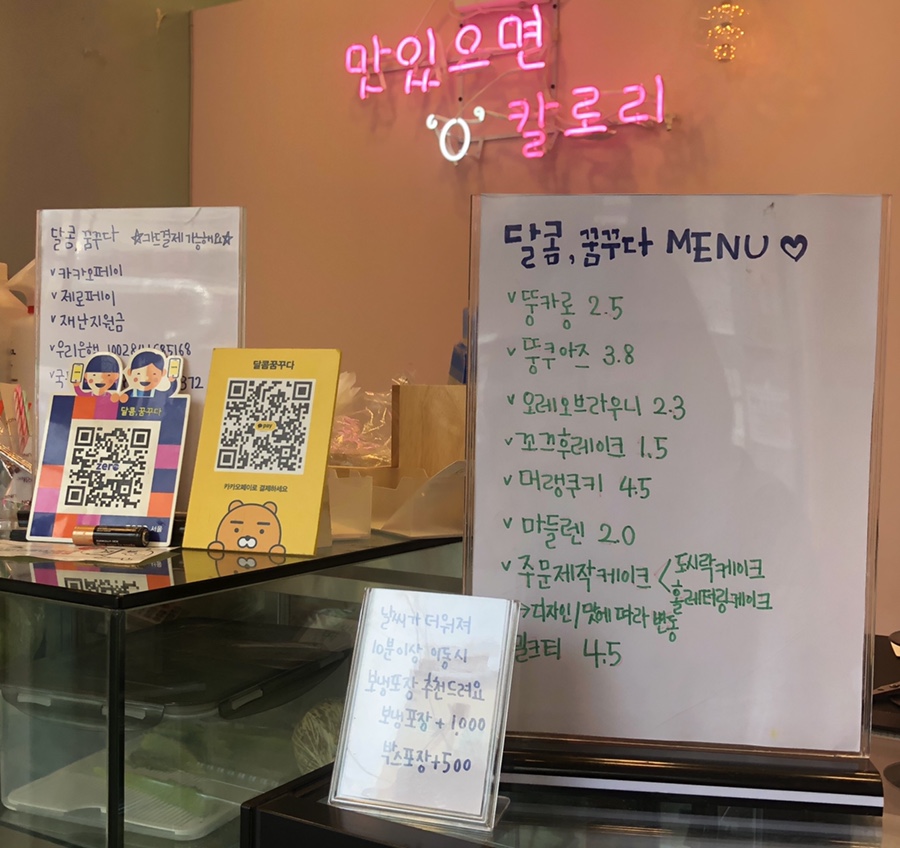 맛있으면
'0' 칼로리
달콤, 꿈꾸다 ☆카드결제 가능해요☆
v 카카오페이
v 제로페이
v 재난지원금
v 우리은행
달콤,꿈꾸다
zero
달콤꿈꾸다
pay
카카오페이로 결제하세요
달콤, 꿈꾸다 MENU ♡
v 뚱카롱 2.5
v 뚱쿠아즈 3.8
v 오레오브라우니 2.3
v 꼬끄후레이크 1.5
v 머랭쿠키 4.5
v 마들렌 2.0
v 주문제작케이크 < 도시락케이크
홀레터링케이크
→ 디자인/맛에 따라 변동
밀크티 4.5
날씨가 더워져
10분이상 이동시
보냉포장 추천드려요
보냉포장 + 1,000
박스포장+500